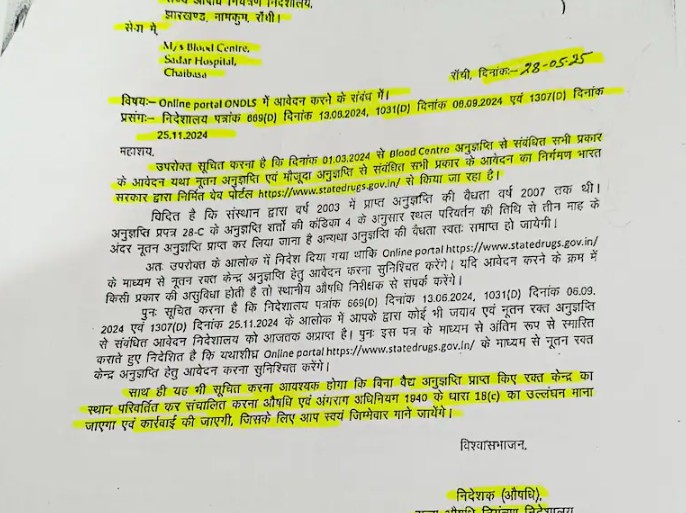 राज्य औषधि नियंत्रण निदेशालय,
झारखण्ड, नामकुम, राँची।
सेवा में,
M/s Blood Centre,
Sadar Hospital,
Chaibasa
राँची, दिनांक:- 28-05-25
विषय:- Online portal ONDLS में आवेदन करने के संबंध में।
प्रसंग:- निदेशालय पत्रांक 669(D) दिनांक 13.06.2024, 1031(D) दिनांक 06.09.2024 एवं 1307(D) दिनांक
25.11.2024
महाशय,
उपरोक्त सूचित करना है कि दिनांक 01.03.2024 से Blood Centre अनुज्ञप्ति से संबंधित सभी प्रकार
के आवेदन यथा नूतन अनुज्ञप्ति एवं मौजूदा अनुज्ञप्ति से संबंधित सभी प्रकार के आवेदन का निर्गमण भारत
सरकार द्वारा निर्मित वेव पोर्टल https://www.statedrugs.gov.in/ से किया जा रहा है।
विदित है कि संस्थान द्वारा वर्ष 2003 में प्राप्त अनुज्ञप्ति की वैधता वर्ष 2007 तक थी।
अनुज्ञप्ति प्रपत्र 28-C के अनुज्ञप्ति शर्तो की कंडिका 4 के अनुसार स्थल परिवर्तन की तिथि से तीन माह के
अंदर नूतन अनुज्ञप्ति प्राप्त कर लिया जाना है अन्यथा अनुज्ञप्ति की वैधता स्वतः समाप्त हो जायेगी।
अतः उपरोक्त के आलोक में निदेश दिया गया था कि Online portal https://www.statedrugs.gov.in/
के माध्यम से नूतन रक्त केन्द्र अनुज्ञप्ति हेतु आवेदन करना सुनिश्चित करेंगे। यदि आवेदन करने के क्रम में
किसी प्रकार की असुविधा होती है तो स्थानीय औषधि निरीक्षक से संपर्क करेंगे।
पुनः सूचित करना है कि निदेशालय पत्रांक 669(D) दिनांक 13.06.2024, 1031(D) दिनांक 06.09.
2024 एवं 1307(D) दिनांक 25.11.2024 के आलोक में आपके द्वारा कोई भी जवाब एवं नूतन रक्त अनुज्ञप्ति
से संबंधित आवेदन निदेशालय को आजतक अप्राप्त है। पुनः इस पत्र के माध्यम से अंतिम रूप से स्मारित
कराते हुए निदेशित है कि यथाशीघ्र Online portal https://www.statedrugs.gov.in/ के माध्यम से नूतन रक्त
केन्द्र अनुज्ञप्ति हेतु आवेदन करना सुनिश्चित करेंगे।
साथ ही यह भी सूचित करना आवश्यक होगा कि बिना वैद्य अनुज्ञप्ति प्राप्त किए रक्त केन्द्र का
स्थान परिवर्तित कर संचालित करना औषधि एवं अंगराग अधिनियम 1940 के धारा 18(c) का उल्लंघन माना
जाएगा एवं कार्रवाई की जाएगी, जिसके लिए आप स्वयं जिम्मेवार माने जायेंगे।
विश्वासभाजन,
निदेशक (औषधि),
राज्य औषधि नियंत्रण निदेशालय,